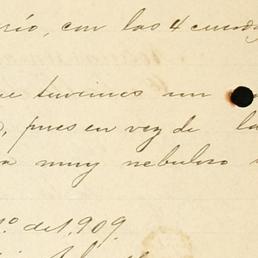 río, con las 4 cuerd
ue tuvimos un
, pues en vez de la
a muy nebuloso
1º del 1,909.